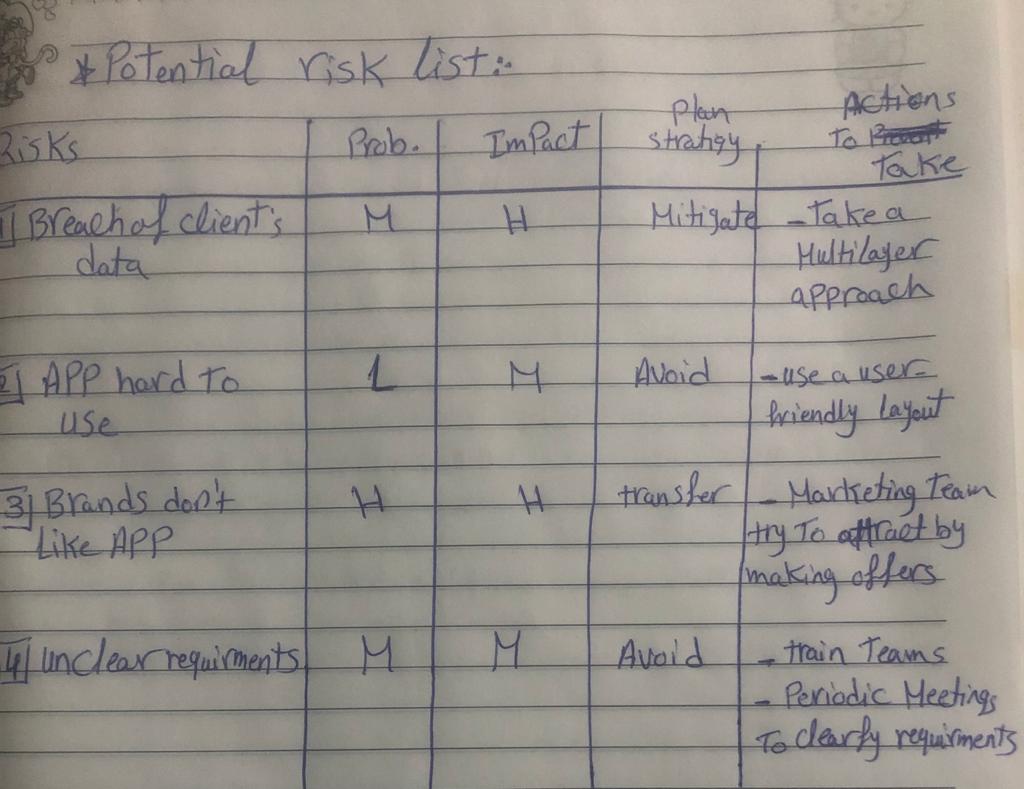 * Potential risk list:-
Risks Prob. Impact Plan stratigy Actions To Take
1] Breach of client's data M H Mitigate - Take a Multilayer approach
2] APP hard to use L M Avoid - use a user-friendly layout
3] Brands don't Like APP H H transfer - Marketing Team try To attract by making offers
4] unclear requirments M M Avoid - train Teams
- Periodic Meetings To clearfy requirments